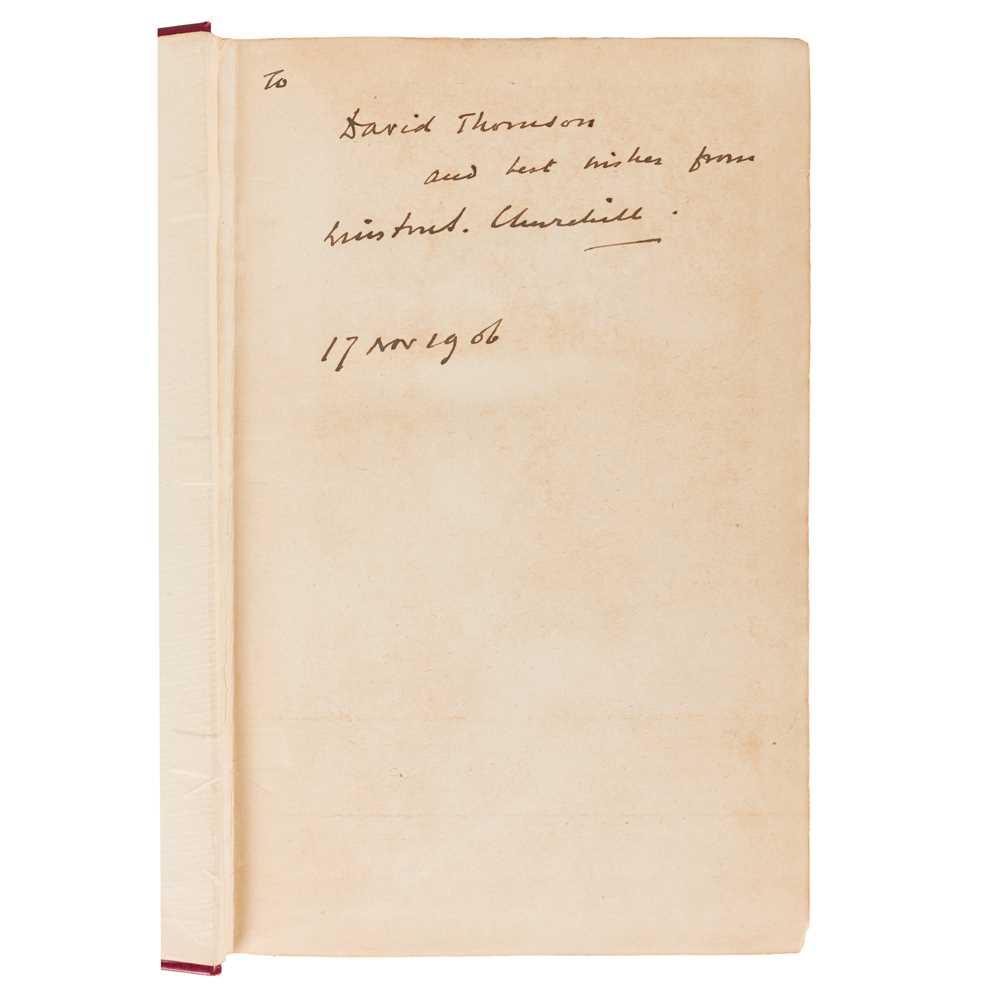 To
David Thomson
and best wishes from
Winston S. Churchill.
17 Nov 1906